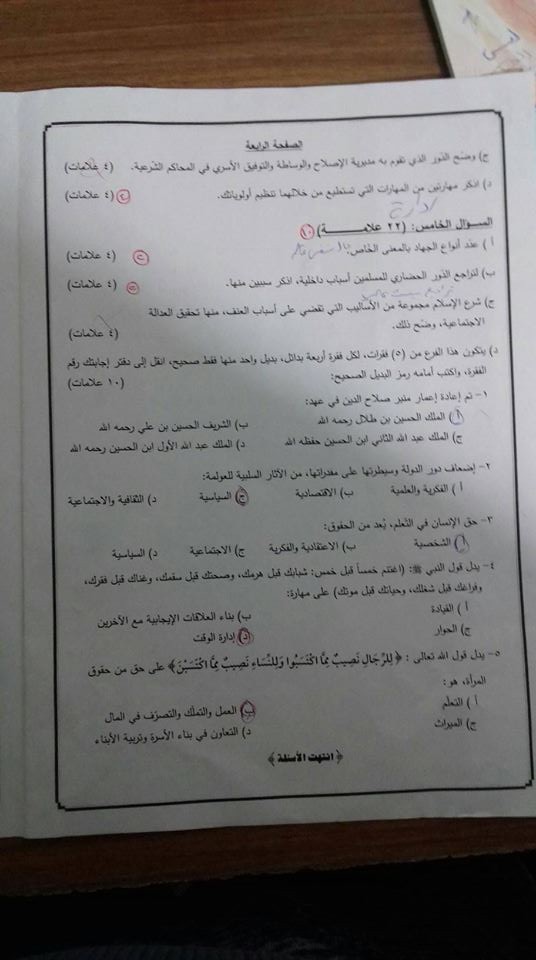 الصفحة الرابعة
ج) وضّح الدّور الذي تقوم به مديرية الإصلاح والوساطة والتوفيق الأسري في المحاكم الشرعية. (٤ علامات)
د) اذكر مهارتين من المهارات التي تستطيع من خلالهما تنظيم أولوياتك. (٤ علامات)
السؤال الخامس: (٢٢ علامـــــة) ١٠
أ ) عدّد أنواع الجهاد بالمعنى الخاص: (٤ علامات)
ب) لتراجع الدّور الحضاري للمسلمين أسباب داخلية، اذكر سببين منها. (٤ علامات)
ج) شرع الإسلام مجموعة من الأساليب التي تقضي على أسباب العنف، منها تحقيق العدالة
الاجتماعية، وضّح ذلك. (٤ علامات)
د) يتكون هذا الفرع من (٥) فقرات، لكل فقرة أربعة بدائل، بديل واحد منها فقط صحيح، انقل إلى دفتر إجابتك رقم
الفقرة، واكتب أمامه رمز البديل الصحيح: (١٠ علامات)
١- تم إعادة إعمار منبر صلاح الدين في عهد:
أ ) الملك الحسين بن طلال رحمه الله ب) الشريف الحسين بن علي رحمه الله
ج) الملك عبد الله الثاني ابن الحسين حفظه الله د) الملك عبد الله الأول ابن الحسين رحمه الله
٢- إضعاف دور الدولة وسيطرتها على مقدراتها، من الآثار السلبية للعولمة:
أ ) الفكرية والعلمية ب) الاقتصادية ج) السياسية د) الثقافية والاجتماعية
٣- حق الإنسان في التّعلم، يُعد من الحقوق:
أ ) الشخصية ب) الاعتقادية والفكرية ج) الاجتماعية د) السياسية
٤- يدل قول النبي ﷺ: (اغتنم خمساً قبل خمس: شبابك قبل هرمك، وصحتك قبل سقمك، وغناك قبل فقرك،
وفراغك قبل شغلك، وحياتك قبل موتك) على مهارة:
أ ) القيادة ب) بناء العلاقات الإيجابية مع الآخرين
ج) الحوار د) إدارة الوقت
٥- يدل قول الله تعالى : ﴿ لِلرِّجَالِ نَصِيبٌ مِمَّا اكْتَسَبُوا وَلِلنِّسَاءِ نَصِيبٌ مِمَّا اكْتَسَبْنَ ﴾ على حق من حقوق
المرأة، هو:
أ ) التعلّم ب) العمل والتملّك والتصرّف في المال
ج) الميراث د) التعاون في بناء الأسرة وتربية الأبناء
﴿ انتهت الأسئلة ﴾